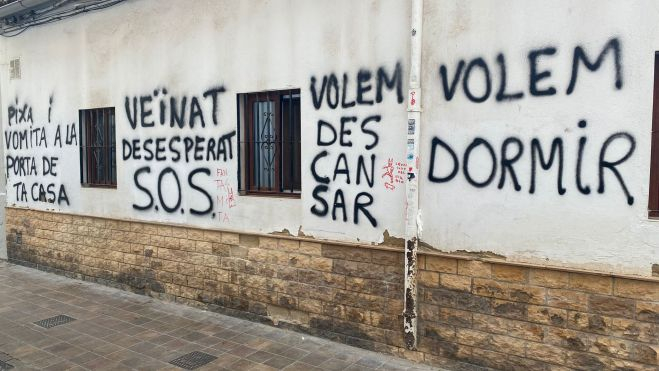 PiXA i
VOMITA A LA
PORTA DE
TA CASA
VEÏNAT
DESESPERAT
S.O.S.
FAN
TA
MA
TA
VOLEM
DES
CAN
SAR
VOLEM
DORMiR